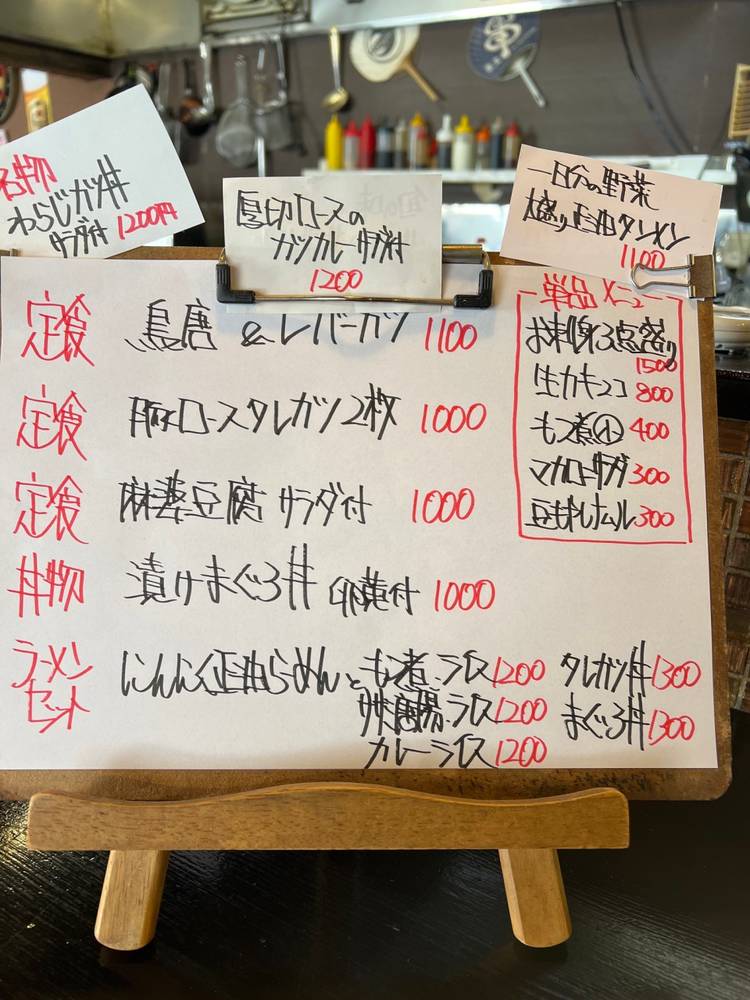 名物
わらじカツ丼
サラダ付 1200円
厚切ロースの
カツカレーサラダ付
1200
一日分の野菜
大盛り正油タンメン
1100
定食 鳥唐 & レバーカツ 1100
定食 豚ロースタレカツ2枚 1000
定食 麻婆豆腐 サラダ付 1000
丼物 漬けまぐろ丼 卵黄付 1000
ラーメン
セット
にんにく正油らーめんと もつ煮.ライス 1200 タレカツ丼 1300
唐揚.ライス 1200 まぐろ丼 1300
カレーライス 1200
単品メニュー
お刺身3点盛り
1500
生カキ2コ 800
もつ煮小 400
マカロニサラダ 300
豆もやしナムル 300